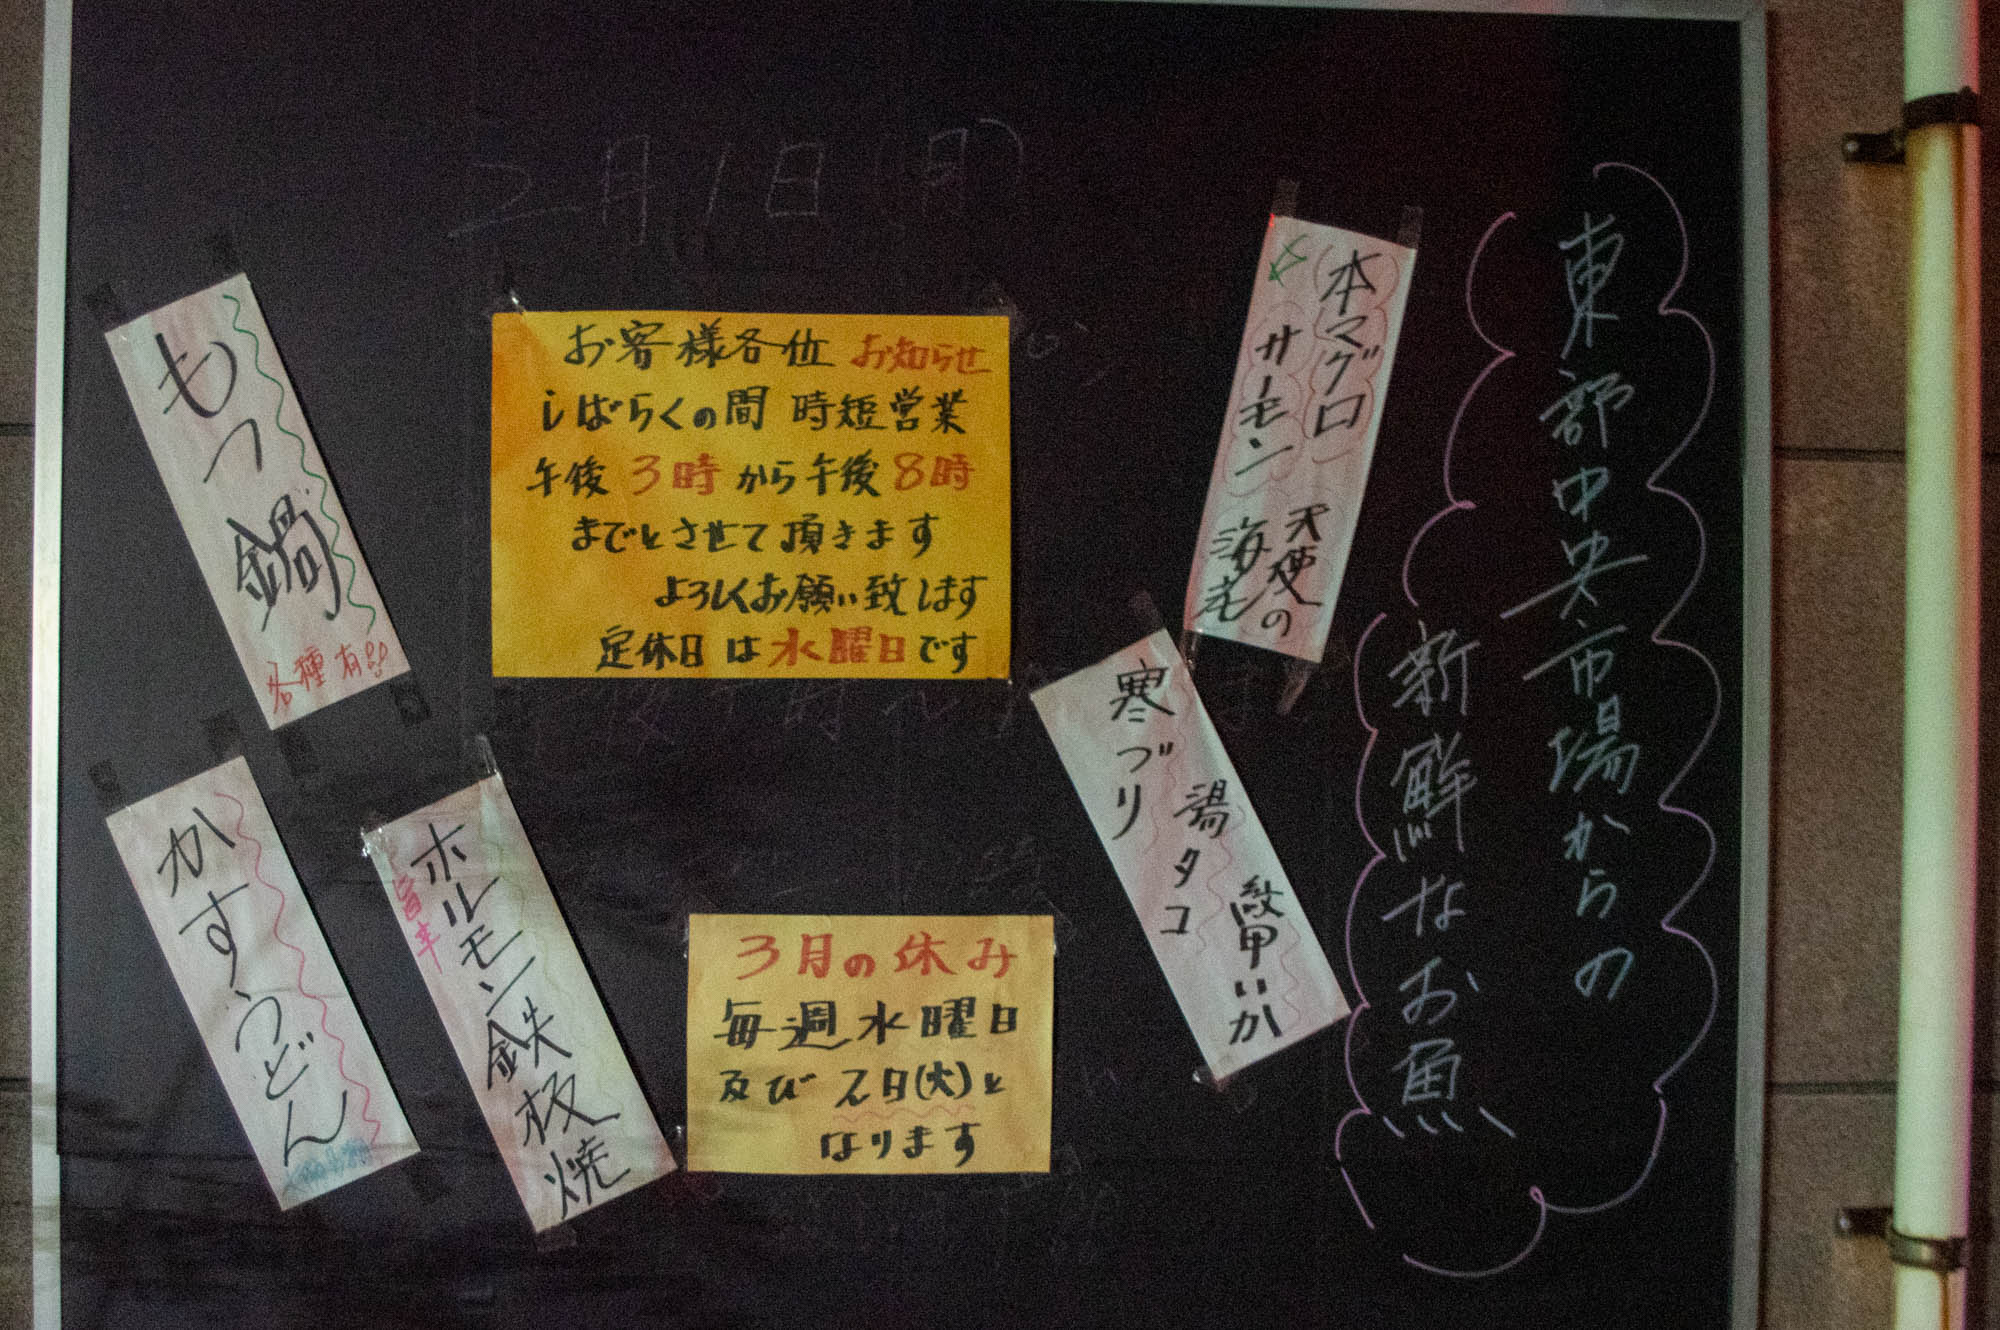 2月1日(月)
東部中央市場からの
新鮮なお魚
本マグロ
サーモン
天使の
海老
寒ブリ
タコ
紋甲いか
お客様各位 お知らせ
しばらくの間 時短営業
午後3時から午後8時
までとさせて頂きます
よろしくお願い致します
定休日は水曜日です
3月の休み
毎週水曜日
及び2日(火)と
なります
もつ鍋
各種有!!
かすうどん
ホルモン鉄板焼
旨辛